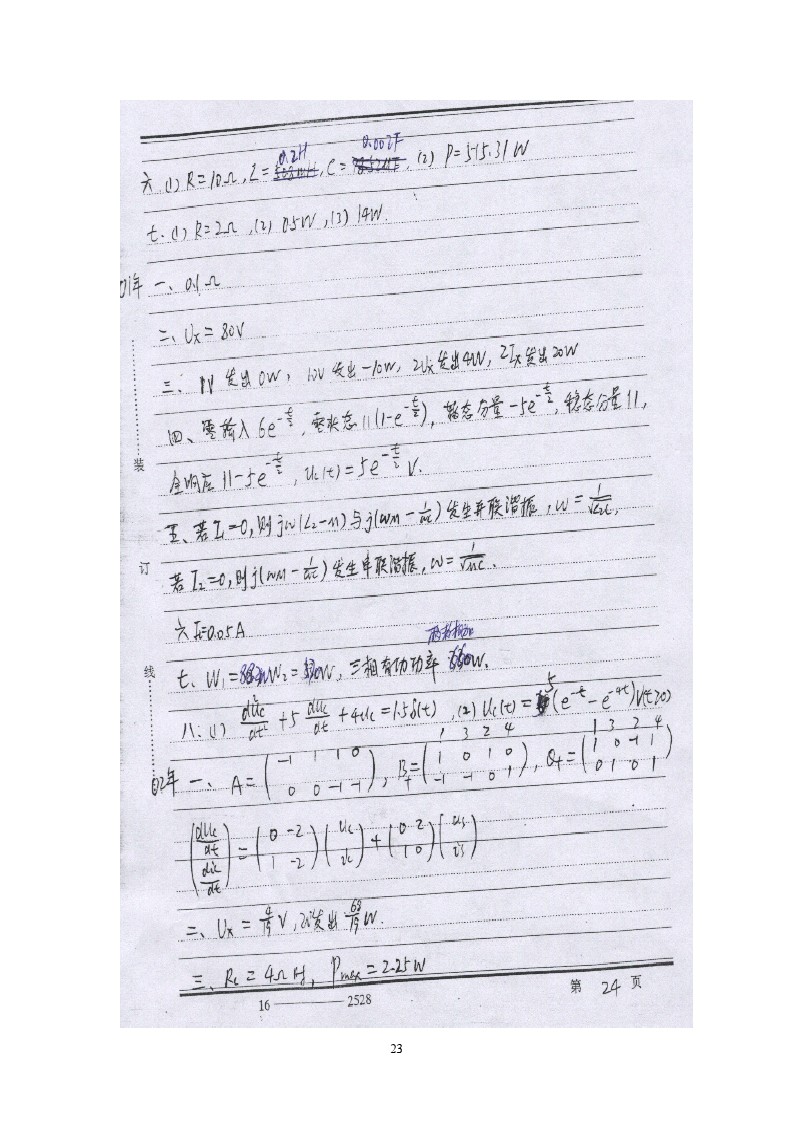 六、(1) R=10Ω, L=0.2H, C=0.002F, (2) P=515.31W
七、(1) R=2Ω, (2) 0.5W, (3) 14W.
01年 一、0.1Ω
二、Ux=80V
三、 发出0W, 10V发出-10W, 2Ux发出4W, 2Ix发出20W
四、零输入 6e^{-t/2}, 零状态 11(1-e^{-t/2}), 暂态分量 -5e^{-t/2}, 稳态分量11,
装
全响应 11-5e^{-t/2}, uc(t)=5e^{-t/2} V.
五、若I₁=0, 则jω(L₂-M)与j(ωM-1/ωc)发生并联谐振, ω=1/√L₂c,
订
若I₂=0, 则j(ωM-1/ωc)发生串联谐振, ω=1/√Mc.
六 I=0.05A
线
两表相加
七、W₁= W₂= W, 三相有功功率 660W.
八、(1) d²uc/dt²+5 duc/dt+4uc=1.5δ(t), (2) Uc(t)= (e^{-t}-e^{-4t})V(t≥0)
1 3 2 4 1 3 2 4
02年 一、A=(-1 1 1 0; 0 0 -1 -1), Bf=(1 0 1 0; -1 -1 0 1), Qf=(1 0 -1 1; 0 1 0 1)
(duc/dt; diL/dt)=(0 -2; 1 -2)(uc; iL)+(0 2; 1 0)(us; is)
二、Ux=4/19 V, 2i发出68/19 W.
三、RL=4Ω时, Pmax=2.25W
16 2528
第 24 页
23